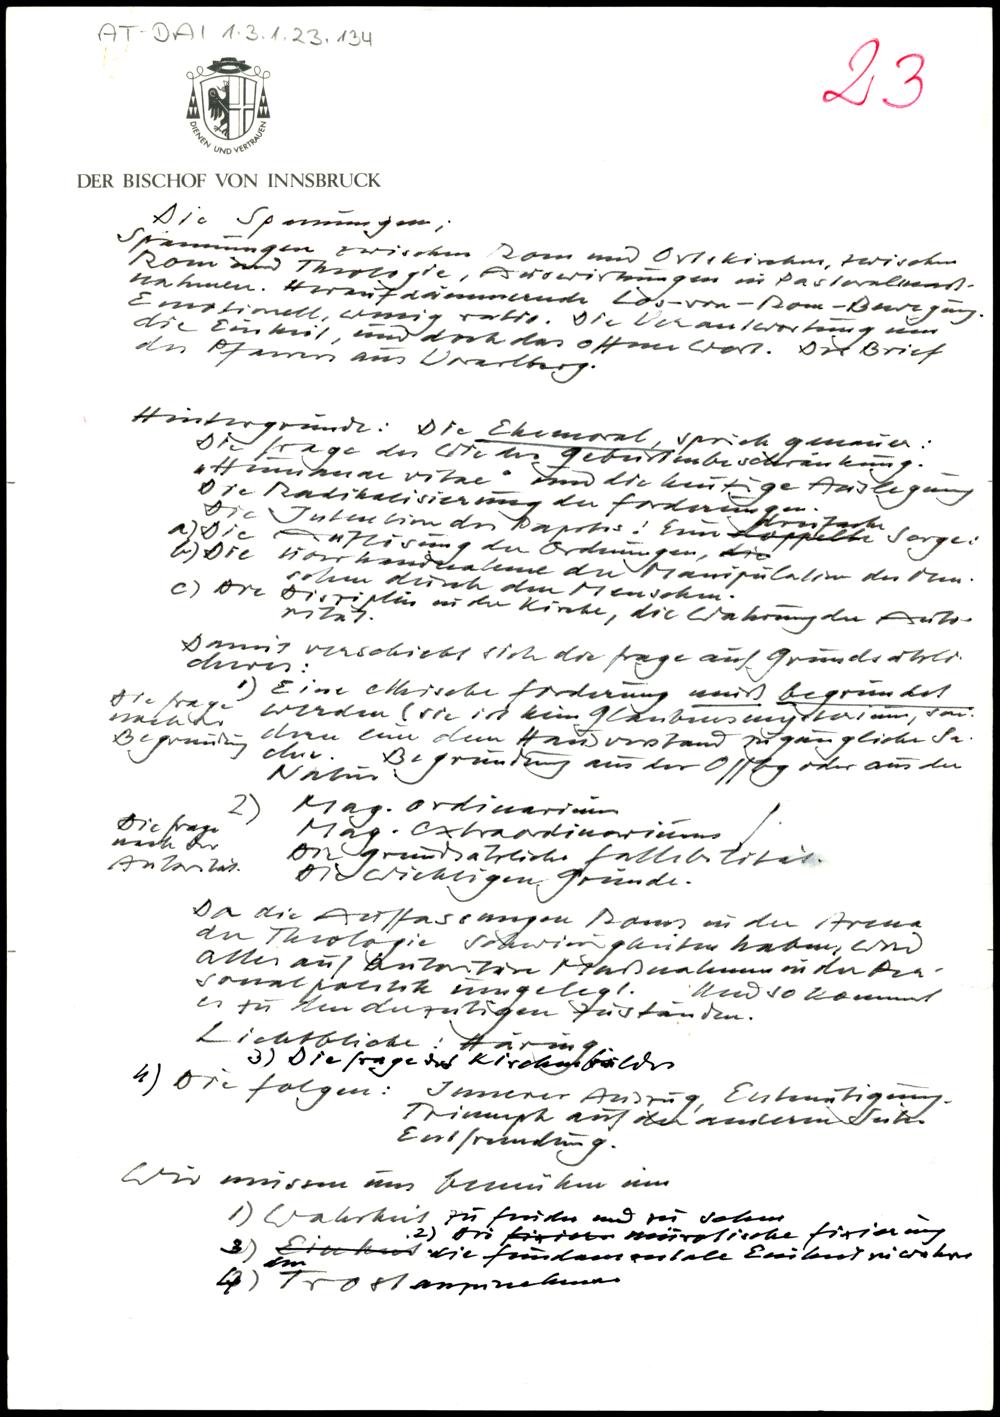 AT-DAI 1.3.1.23.134
23
DIENEN UND VERTRAUEN
DER BISCHOF VON INNSBRUCK
Die Spannungen;
Spannungen zwischen Rom und Ortskirchen, zwischen
Rom und Theologie, Auswirkungen in Pastoralmaß-
nahmen. Heraufdämmernde Los-von-Rom-Bewegung.
Emotionell, wenig ratio. Die Verantwortung um
die Einheit, und doch das offene Wort. Der Brief
des Pfarrers aus Vorarlberg.
Hintergründe: Die Ehemoral, sprich genauer:
Die Frage des Wie der Geburtenbeschränkung.
"Humanae vitae" und die heutige Auslegung
Die Radikalisierung der Forderungen.
Die Intention des Papstes! Eine doppelte dreifache Sorge:
a) Die Auflösung der Ordnungen, die
b) Die Überhandnahme der Manipulation des Men-
schen durch den Menschen.
c) Die Disziplin in der Kirche, die Wahrung der Auto-
rität.
Damit verschiebt sich die Frage auf Grundsätzli-
cheres:
Die Frage
nach der
Begründung
1) Eine ethische Forderung muß begründet
werden (sie ist kein Glaubensmysterium, son-
dern eine dem Hausverstand zugängliche Sa-
che. Begründung aus der Offbg oder aus der
Natur.
Die Frage
nach der
Autorität.
2) Mag. ordinarium
Mag. extraordinarium
Die grundsätzliche Fallibilität.
Die wichtigen Gründe.
Da die Auffassungen Roms in der Arena
der Theologie Schwierigkeiten haben, wird
alles auf Autoritäre Maßnahmen in der Per-
sonalpolitik umgelegt. Und so kommt
es zu den derzeitigen Zuständen.
Lichtblicke: Häring
3) Die Frage des Kirchenbildes
4) Die Folgen: Innerer Auszug, Entmutigung.
Triumph auf der anderen Seite.
Entfremdung.
Wir müssen uns bemühen um
1) Wahrheit zu finden und zu sehen
2) Die fixiere neurotische Fixierung
3) Einheit die fundamentale Einheit zu wahren
4) Trost anzunehmen